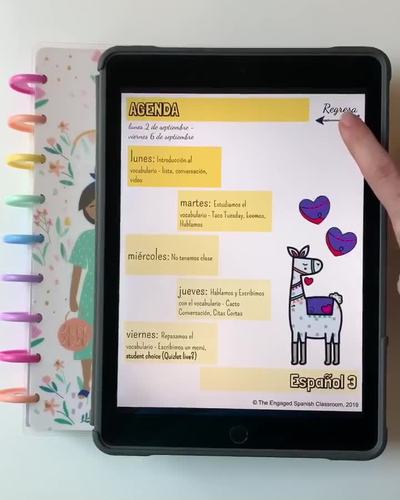 AGENDA
Regresa
lunes 2 de septiembre -
viernes 6 de septiembre
lunes: Introducción al
vocabulario - lista, conversación,
video
martes: Estudiamos el
vocabulario - Taco Tuesday, Leemos,
Hablamos
miércoles: No tenemos clase
jueves: Hablamos y Escribimos
con el vocabulario - Cacto
Conversación, Citas Cortas
viernes: Repasamos el
vocabulario - Escribimos un menú,
student choice (Quizlet live?)
Español 3
© The Engaged Spanish Classroom, 2019